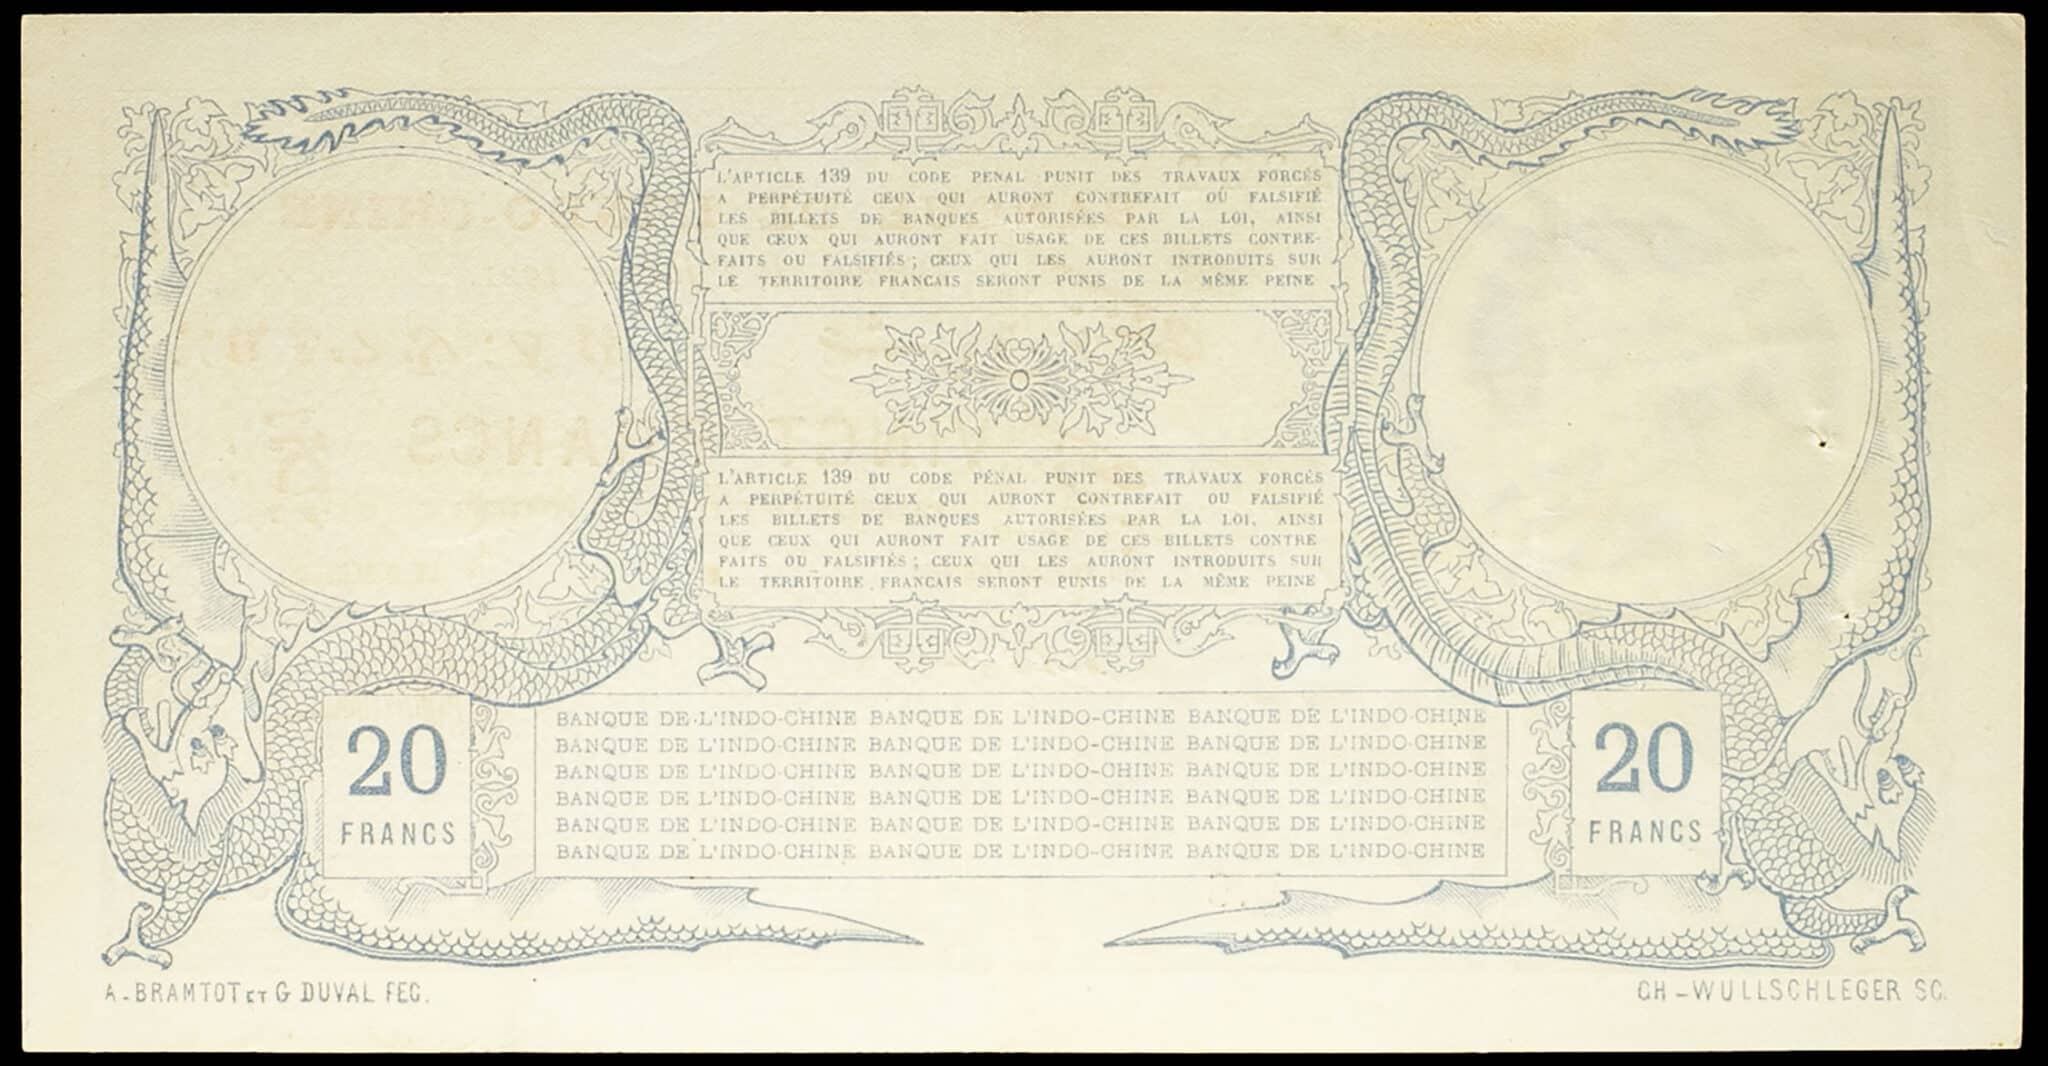 L'ARTICLE 139 DU CODE PENAL PUNIT DES TRAVAUX FORCÉS
A PERPÉTUITÉ CEUX QUI AURONT CONTREFAIT OÙ FALSIFIÉ
LES BILLETS DE BANQUES AUTORISÉES PAR LA LOI, AINSI
QUE CEUX QUI AURONT FAIT USAGE DE CES BILLETS CONTRE-
FAITS OU FALSIFIÉS; CEUX QUI LES AURONT INTRODUITS SUR
LE TERRITOIRE FRANCAIS SERONT PUNIS DE LA MÊME PEINE
VINGT FRANCS
L'ARTICLE 139 DU CODE PÉNAL PUNIT DES TRAVAUX FORCÉS
A PERPÉTUITÉ CEUX QUI AURONT CONTREFAIT OU FALSIFIÉ
LES BILLETS DE BANQUES AUTORISÉES PAR LA LOI, AINSI
QUE CEUX QUI AURONT FAIT USAGE DE CES BILLETS CONTRE
FAITS OU FALSIFIÉS; CEUX QUI LES AURONT INTRODUITS SUR
LE TERRITOIRE FRANCAIS SERONT PUNIS DE LA MÊME PEINE
20
FRANCS
BANQUE DE L'INDO-CHINE BANQUE DE L'INDO-CHINE BANQUE DE L'INDO-CHINE
BANQUE DE L'INDO-CHINE BANQUE DE L'INDO-CHINE BANQUE DE L'INDO-CHINE
BANQUE DE L'INDO-CHINE BANQUE DE L'INDO-CHINE BANQUE DE L'INDO-CHINE
BANQUE DE L'INDO-CHINE BANQUE DE L'INDO-CHINE BANQUE DE L'INDO-CHINE
BANQUE DE L'INDO-CHINE BANQUE DE L'INDO-CHINE BANQUE DE L'INDO-CHINE
BANQUE DE L'INDO-CHINE BANQUE DE L'INDO-CHINE BANQUE DE L'INDO-CHINE
20
FRANCS
A-BRAMTOT ET G DUVAL FEC.
CH-WULLSCHLEGER SC.